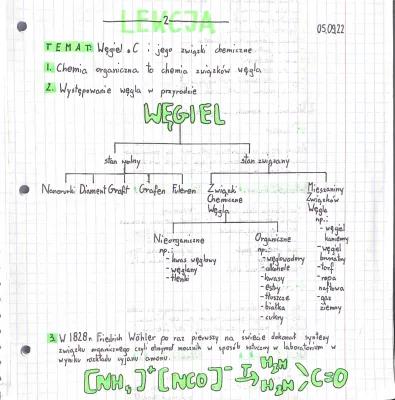 LEKCJA
2
05.09.22
TEMAT: Węgiel C i jego związki chemiczne
1. Chemia organiczna to chemia związków węgla
2. Występowanie węgla w przyrodzie
WĘGIEL
stan wolny
stan związany
Nanorurki Diament Grafit Grafen Fuleren
Związki
Chemiczne
Węgla
Mieszaniny
Związków
Węgla
np.:
- węgiel
kamienny
- węgiel
brunatny
- torf
- ropa
naftowa
- gaz
ziemny
Nieorganiczne
np.:
- kwas węglowy
- węglany
- tlenki
Organiczne
np.:
- węglowodory
- alkohole
- kwasy
- estry
- tłuszcze
- białka
- cukry
3. W 1828r. Friedrich Wöhler po raz pierwszy na świecie dokonał syntezy
związku organicznego czyli otrzymał mocznik w sposób sztuczny w laboratorium w
wyniku rozkładu cyjanianu amonu.
[NH₄]⁺[NCO]⁻
H₂N
H₂N
C=O